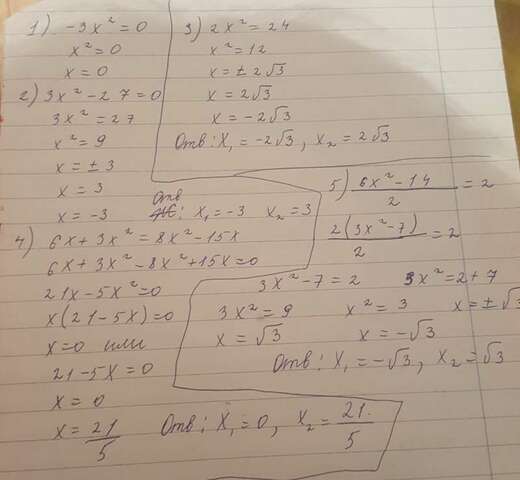 1) -3x² = 0
x² = 0
x = 0
2) 3x² - 27 = 0
3x² = 27
x² = 9
x = ± 3
x = 3
x = -3
Отв: x₁ = -3 x₂ = 3
3) 2x² = 24
x² = 12
x = ± 2√3
x = 2√3
x = -2√3
Отв: x₁ = -2√3, x₂ = 2√3
4) 6x + 3x² = 8x² - 15x
6x + 3x² - 8x² + 15x = 0
21x - 5x² = 0
x(21 - 5x) = 0
x = 0 или
21 - 5x = 0
x = 0
x = 21/5
Отв: x₁ = 0, x₂ = 21/5
5) (6x² - 14)/2 = 2
2(3x² - 7)/2 = 2
3x² - 7 = 2 3x² = 2 + 7
3x² = 9 x² = 3 x = ± √3
x = √3 x = -√3
Отв: x₁ = -√3, x₂ = √3